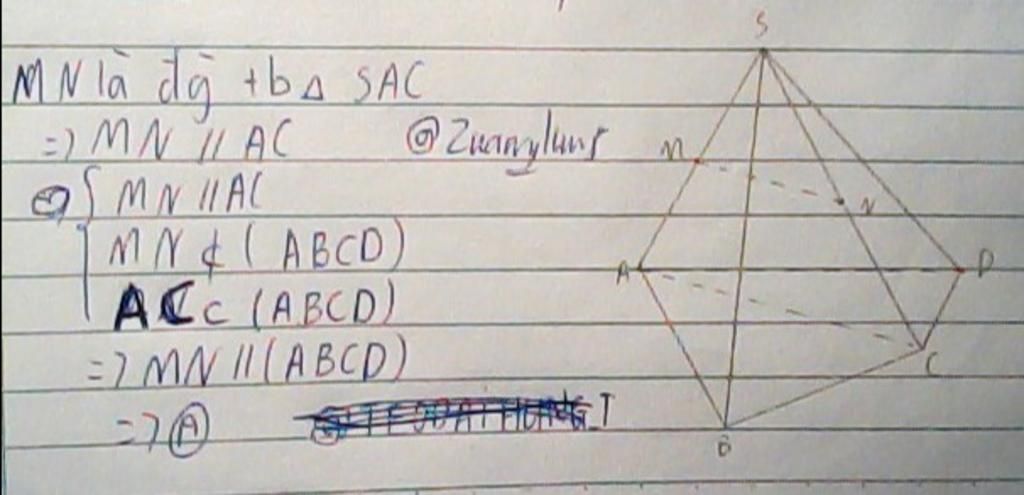 MN là đg̀ tb Δ SAC
=> MN // AC
MN // AC
MN ⊄ (ABCD)
AC ⊂ (ABCD)
=> MN // (ABCD)
=> A
S
M
N
A
D
C
B